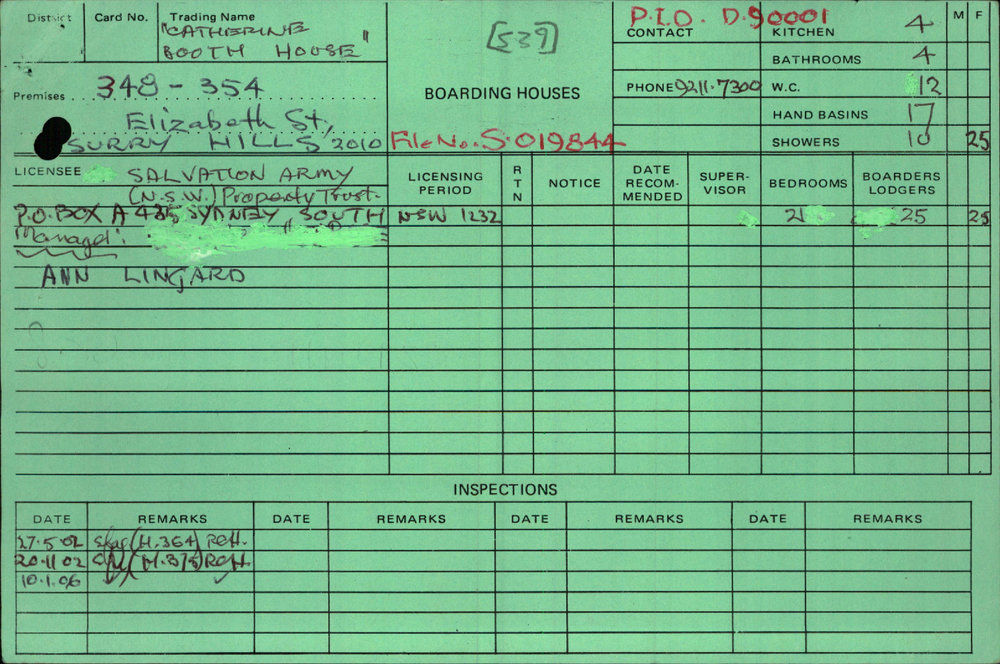 District
Card No.
Trading Name
"CATHERINE
BOOTH HOUSE"
[539]
P.I.D. D.90001
CONTACT
KITCHEN 4
M F
BATHROOMS 4
Premises 348 - 354
BOARDING HOUSES
PHONE 9211.7300
W.C. 12
Elizabeth St,
HAND BASINS 17
SURRY HILLS 2010
File No. S.019844
SHOWERS 10 25
LICENSEE SALVATION ARMY
(N.S.W.) Property Trust.
LICENSING PERIOD
RTN
NOTICE
DATE RECOM-MENDED
SUPER-VISOR
BEDROOMS
BOARDERS LODGERS
P.O. BOX A 435 SYDNEY SOUTH NSW 1232
21 25 25
Manager:
ANN LINGARD
INSPECTIONS
DATE REMARKS DATE REMARKS DATE REMARKS DATE REMARKS
27.5.02 (H.364) RGH.
20.11.02 (H.375) RGH.
10.1.06 ✓